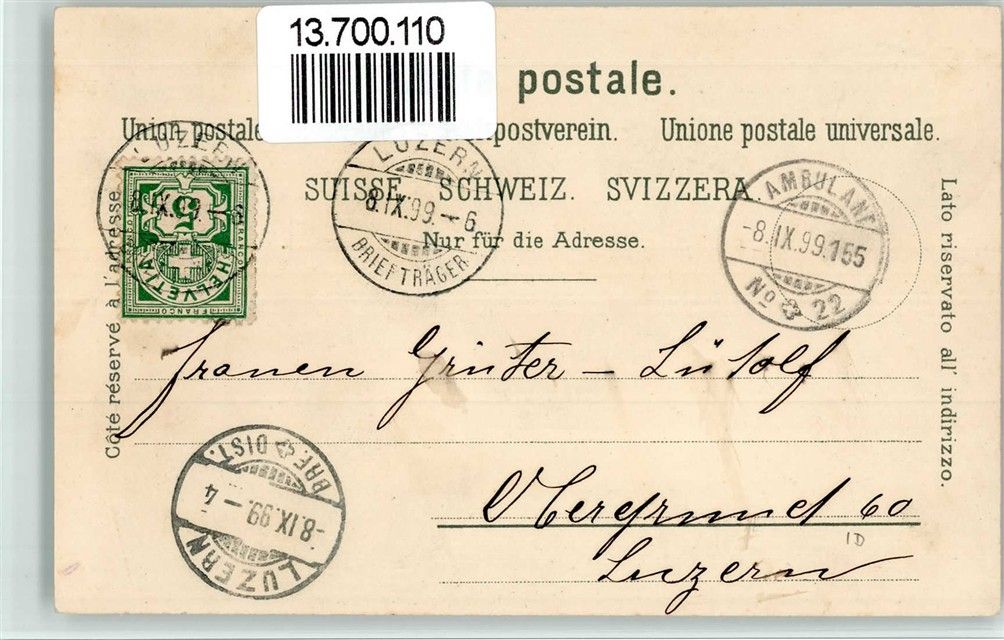 13.700.110
postale.
Union postale postverein. Unione postale universale.
SUISSE. SCHWEIZ. SVIZZERA.
Nur für die Adresse.
Côté réservé à l'adresse.
Lato riservato all' indirizzo.
LUZERN
8.IX.99.
5
HELVETIA
FRANCO
LUZERN
8.IX.99.-6
BRIEFTRÄGER
AMBULANT
-8.IX.99.155
No 22
Frauen Grüter - Lütolf
Obergrund 60
Luzern
1D
BRF. DIST.
-8.IX.99-4
LUZERN